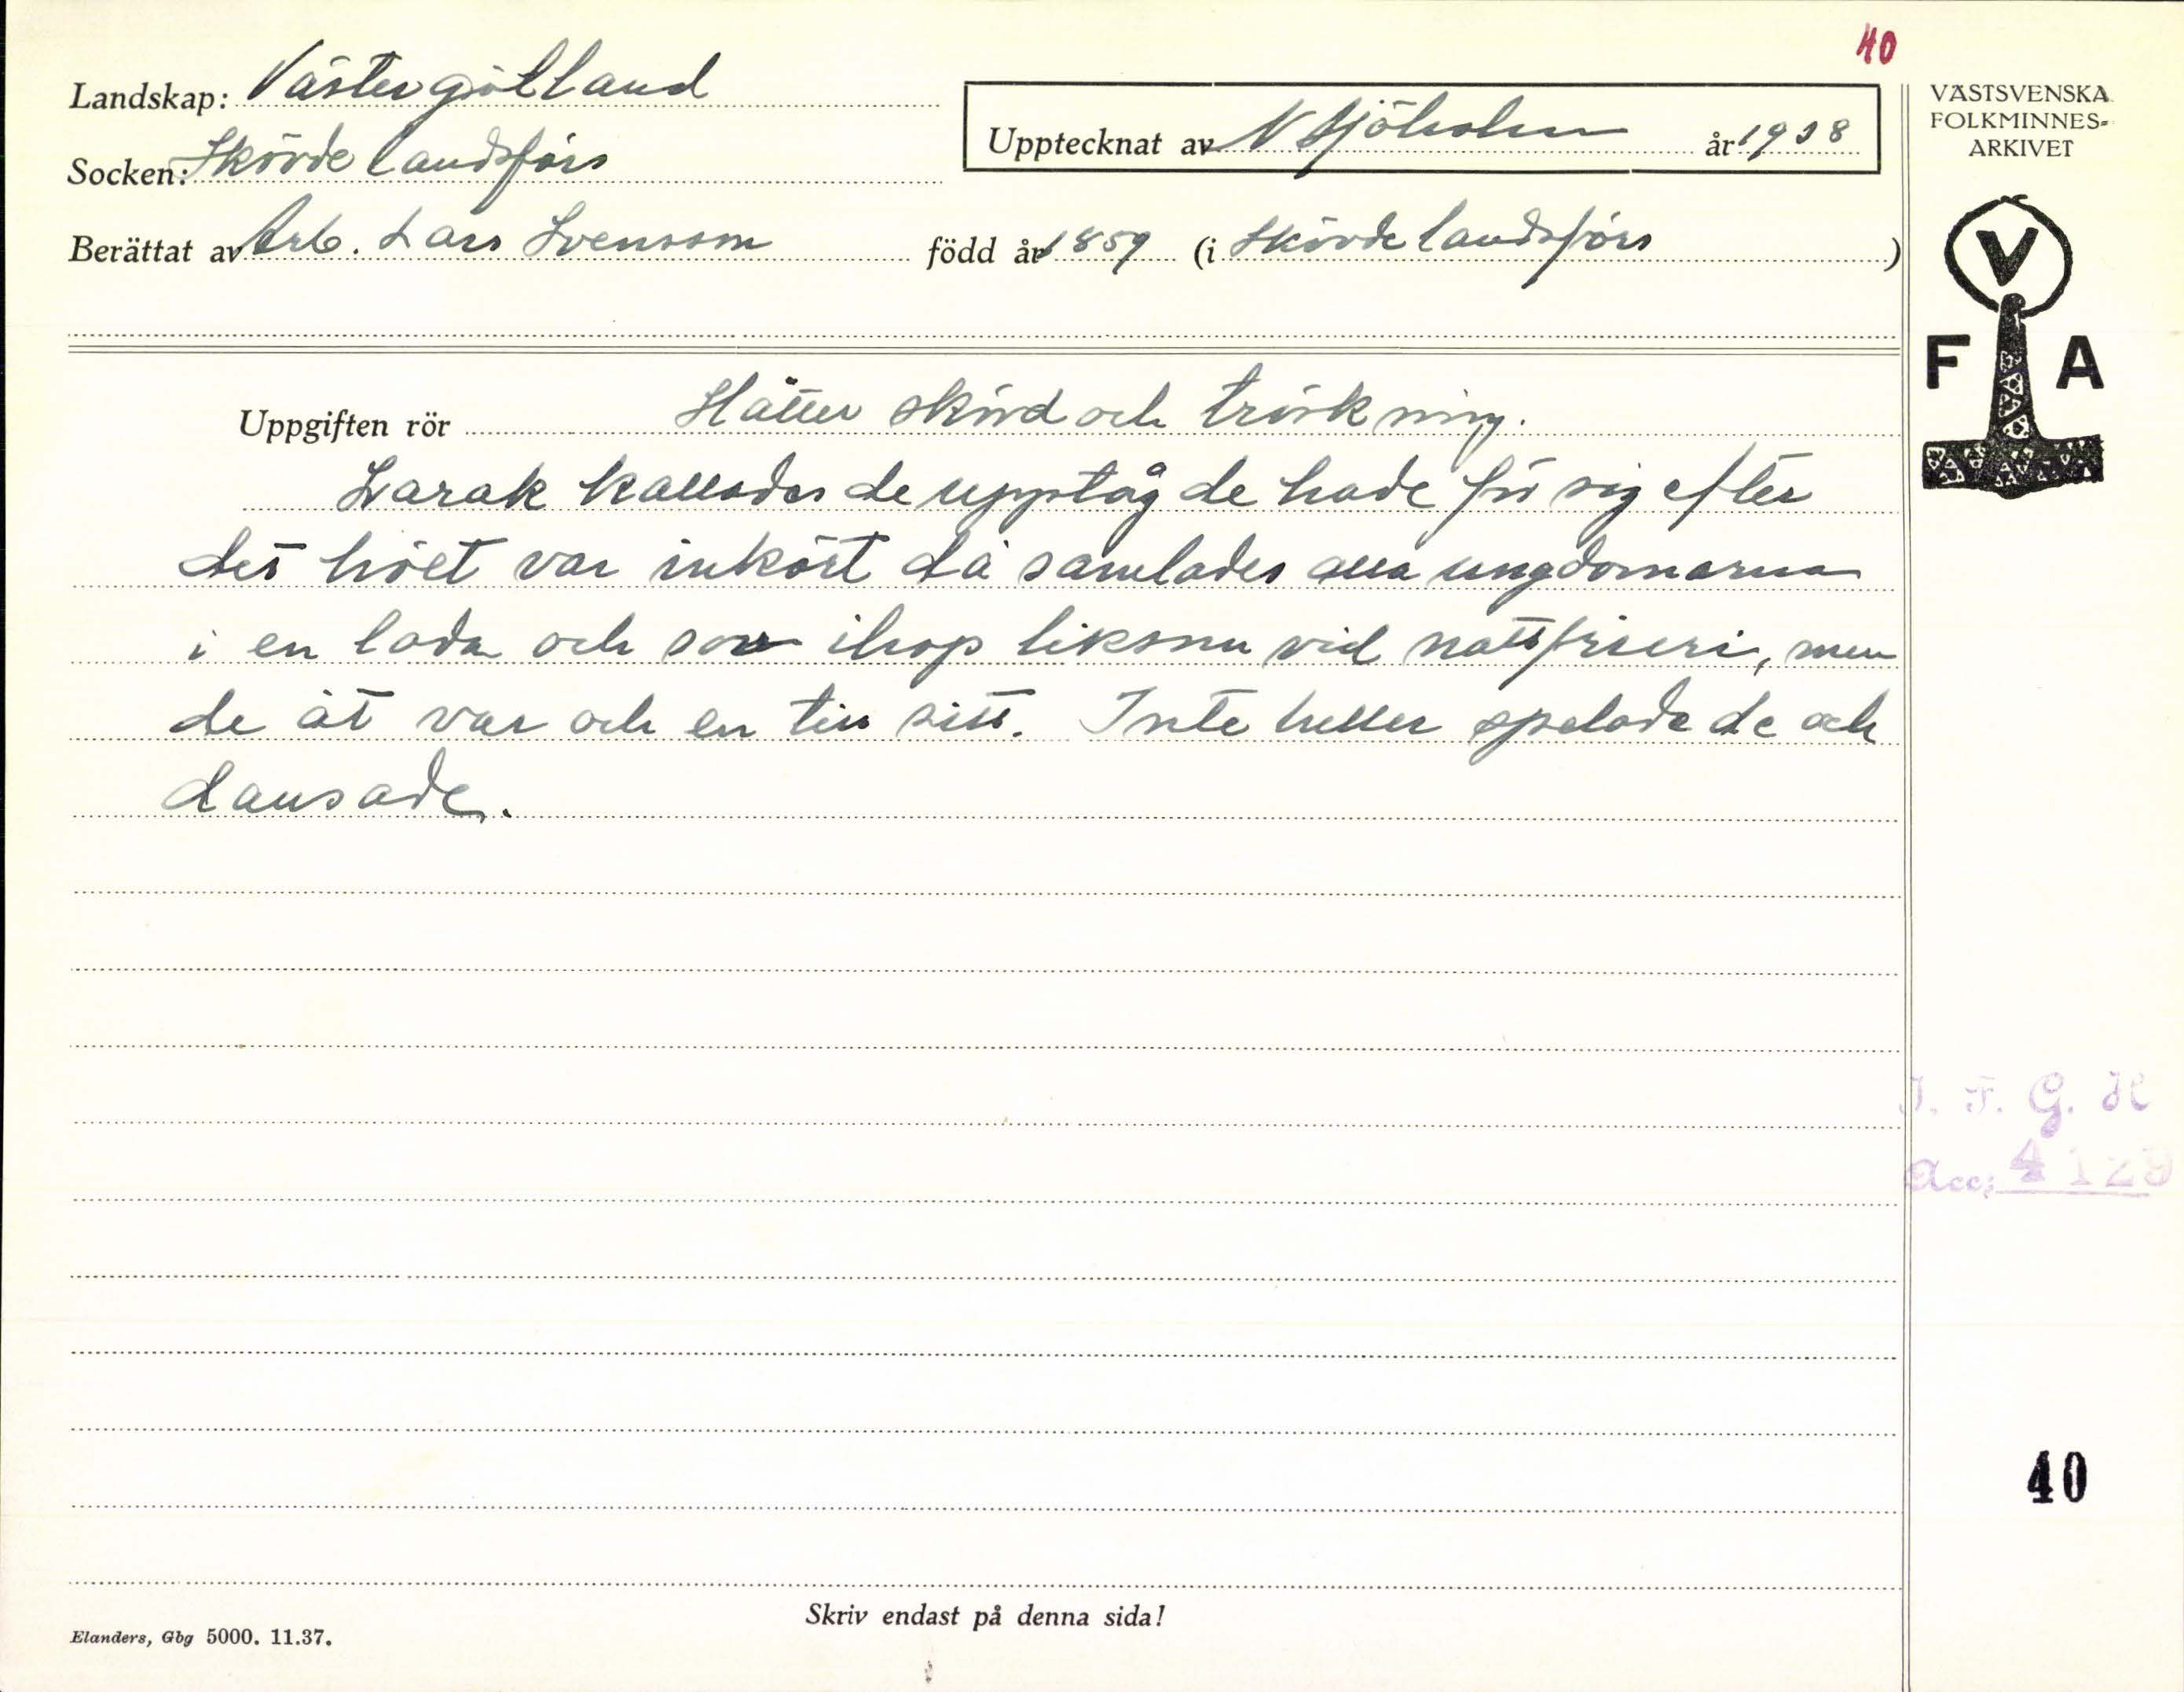 40
Landskap: Västergötland
Socken: Skövde landsförs
Upptecknat av N Sjöholm år 1938
Berättat av Arb. Lars Svensson född år 1859 (i Skövde landsförs)
VÄSTSVENSKA
FOLKMINNES-
ARKIVET
V
F A
Uppgiften rör Slåtter skörd och tröskning.
kallades de upptåg de hade för sig efter
det höet var inkört då samlades alla ungdomarna
i en lada och sov ihop liksom vid nattfrieri, men
de åt var och en till sitt. Inte heller spelade de och
dansade.
I. F. G. H
Acc: 4129
40
Skriv endast på denna sida!
Elanders, Gbg 5000. 11.37.